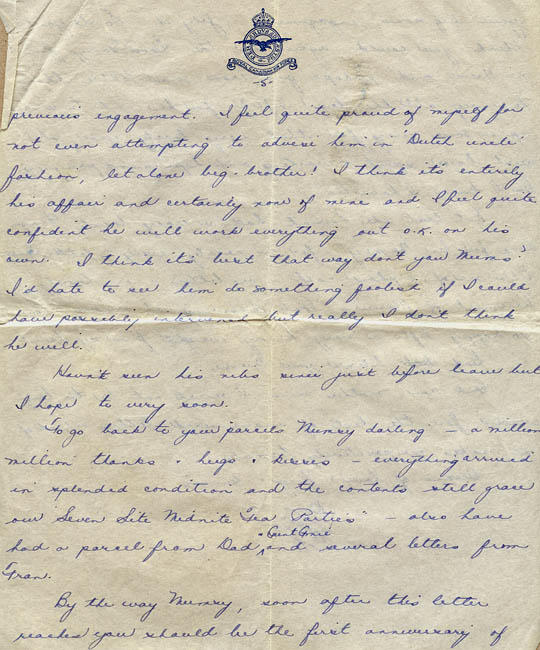 ROYAL CANADIAN AIR FORCE
-5-
previous engagement. I feel quite proud of myself for
not even attempting to advise him in 'Dutch uncle'
fashion, let alone big-brother! I think it's entirely
his affair and certainly none of mine and I feel quite
confident he will work everything out o.k. on his
own. I think it's best that way don't you Mums?
I'd hate to see him do something foolish if I could
have possibly intervened but really I don't think
he will.
Haven't seen his nibs since just before leave but
I hope to very soon.
To go back to your parcels Mumsy darling – a million
million thanks + hugs + kisses – everything arrived
in splendid condition and the contents still grace
our Seven Site Midnite "Tea Parties" – also have
+ Aunt
had a parcel from Dad, and several letters from
Gran.
By the way Mumsy, soon after this letter
reaches you should be the first anniversary of